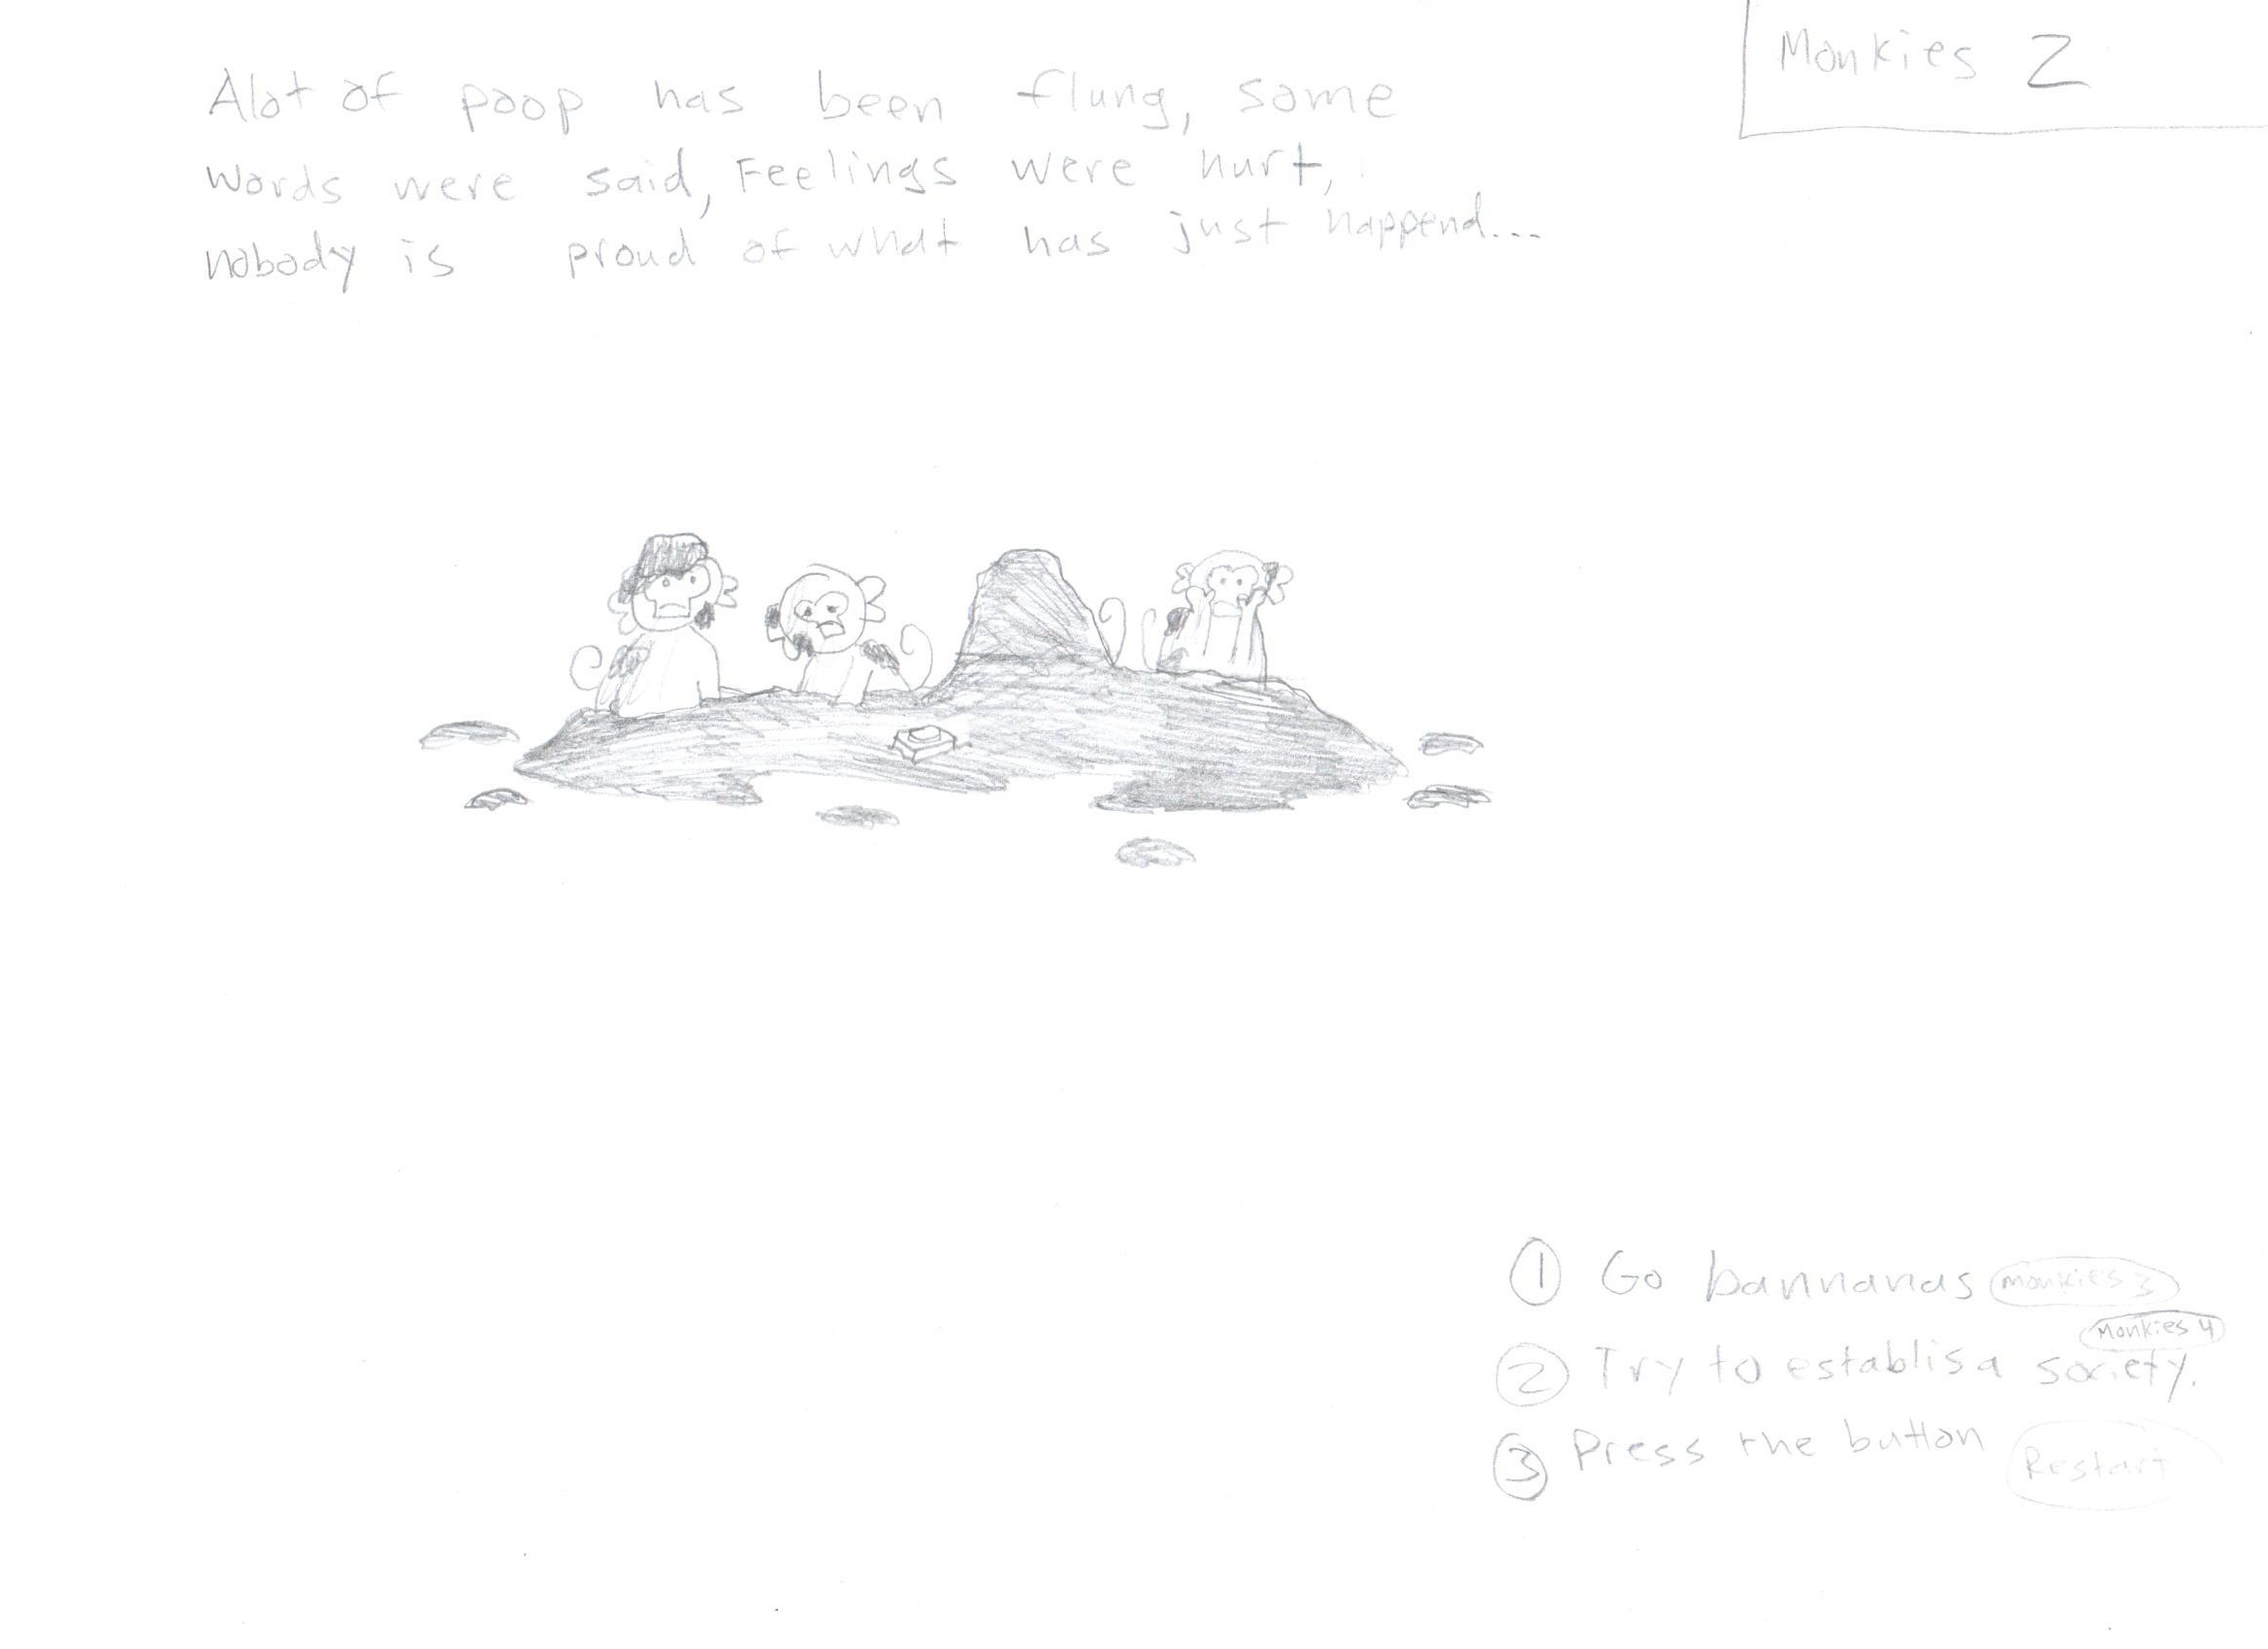 Monkies 2
Alot of poop has been flung, some
words were said, Feelings were hurt,
nobody is proud of what has just happend...
① Go bannanas Monkies 3
Monkies 4
② Try to establis a society.
③ Press the button Restart